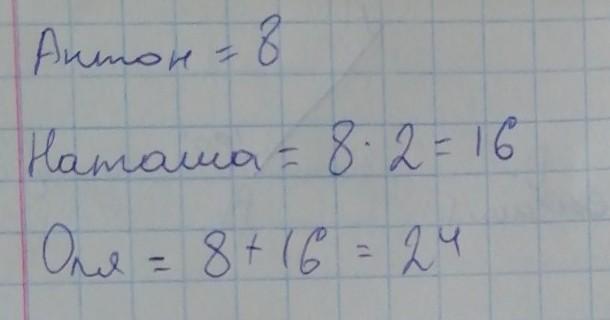 Антон = 8
Наташа = 8 · 2 = 16
Оля = 8 + 16 = 24